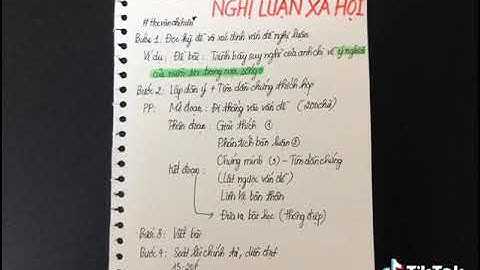 NGHỊ LUẬN XÃ HỘI
Bước 1: Đọc kỹ đề và xác định vấn đề nghị luận
Ví dụ: Đề bài: Trình bày suy nghĩ của anh chị về ý nghĩa
của niềm tin trong cuộc sống
Bước 2: Lập dàn ý + Tìm dẫn chứng thích hợp
PP: Mở đoạn: Đi thẳng vào vấn đề (200chữ)
Thân đoạn: Giải thích (1)
Phân tích bàn luận (2)
Chứng minh (3) - Tìm dẫn chứng
(Lật ngược vấn đề)
Kết đoạn: Liên hệ bản thân
Đưa ra bài học (thông điệp)
Bước 3: Viết bài
Bước 4: Soát lỗi chính tả, diễn đạt
TikTok